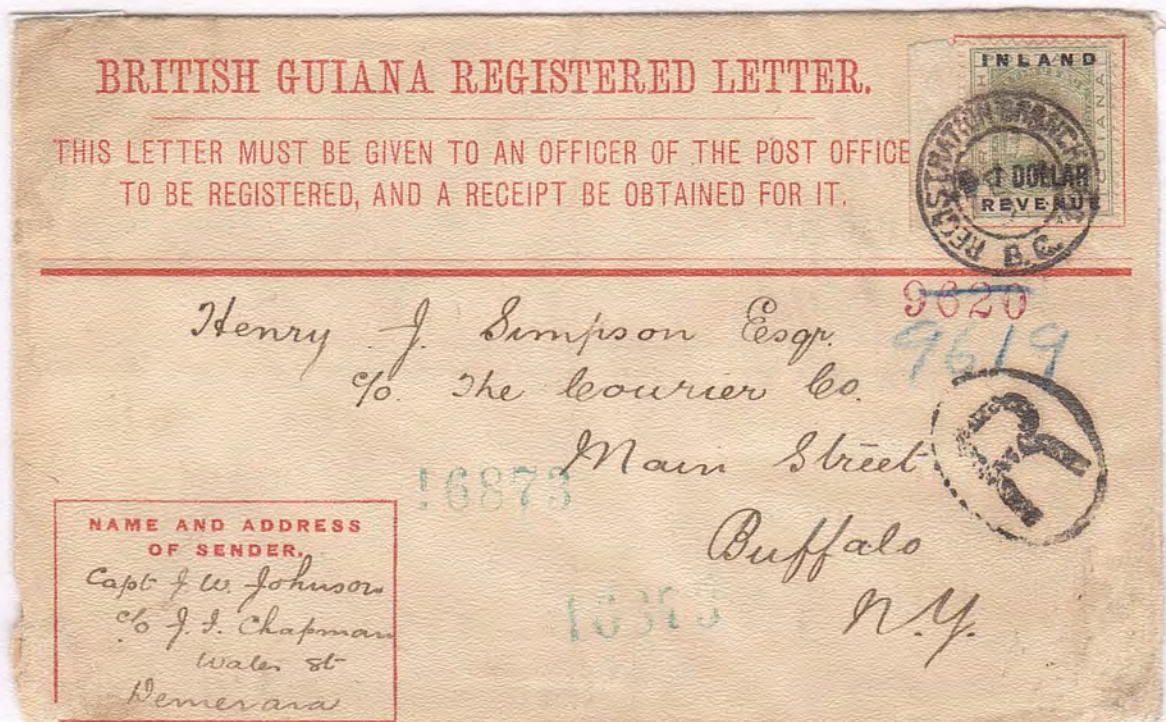 BRITISH GUIANA REGISTERED LETTER.
THIS LETTER MUST BE GIVEN TO AN OFFICER OF THE POST OFFICE
TO BE REGISTERED, AND A RECEIPT BE OBTAINED FOR IT.
INLAND
GUIANA
1 DOLLAR
REVENUE
REGISTRATION BRANCH
B.G.
9620
9619
R
Henry J. Simpson Esqr.
c/o The Courier Co.
Main Street
Buffalo
N.Y.
16873
NAME AND ADDRESS
OF SENDER.
Capt J. W. Johnson
c/o J. I. Chapman
Water st
Demerara